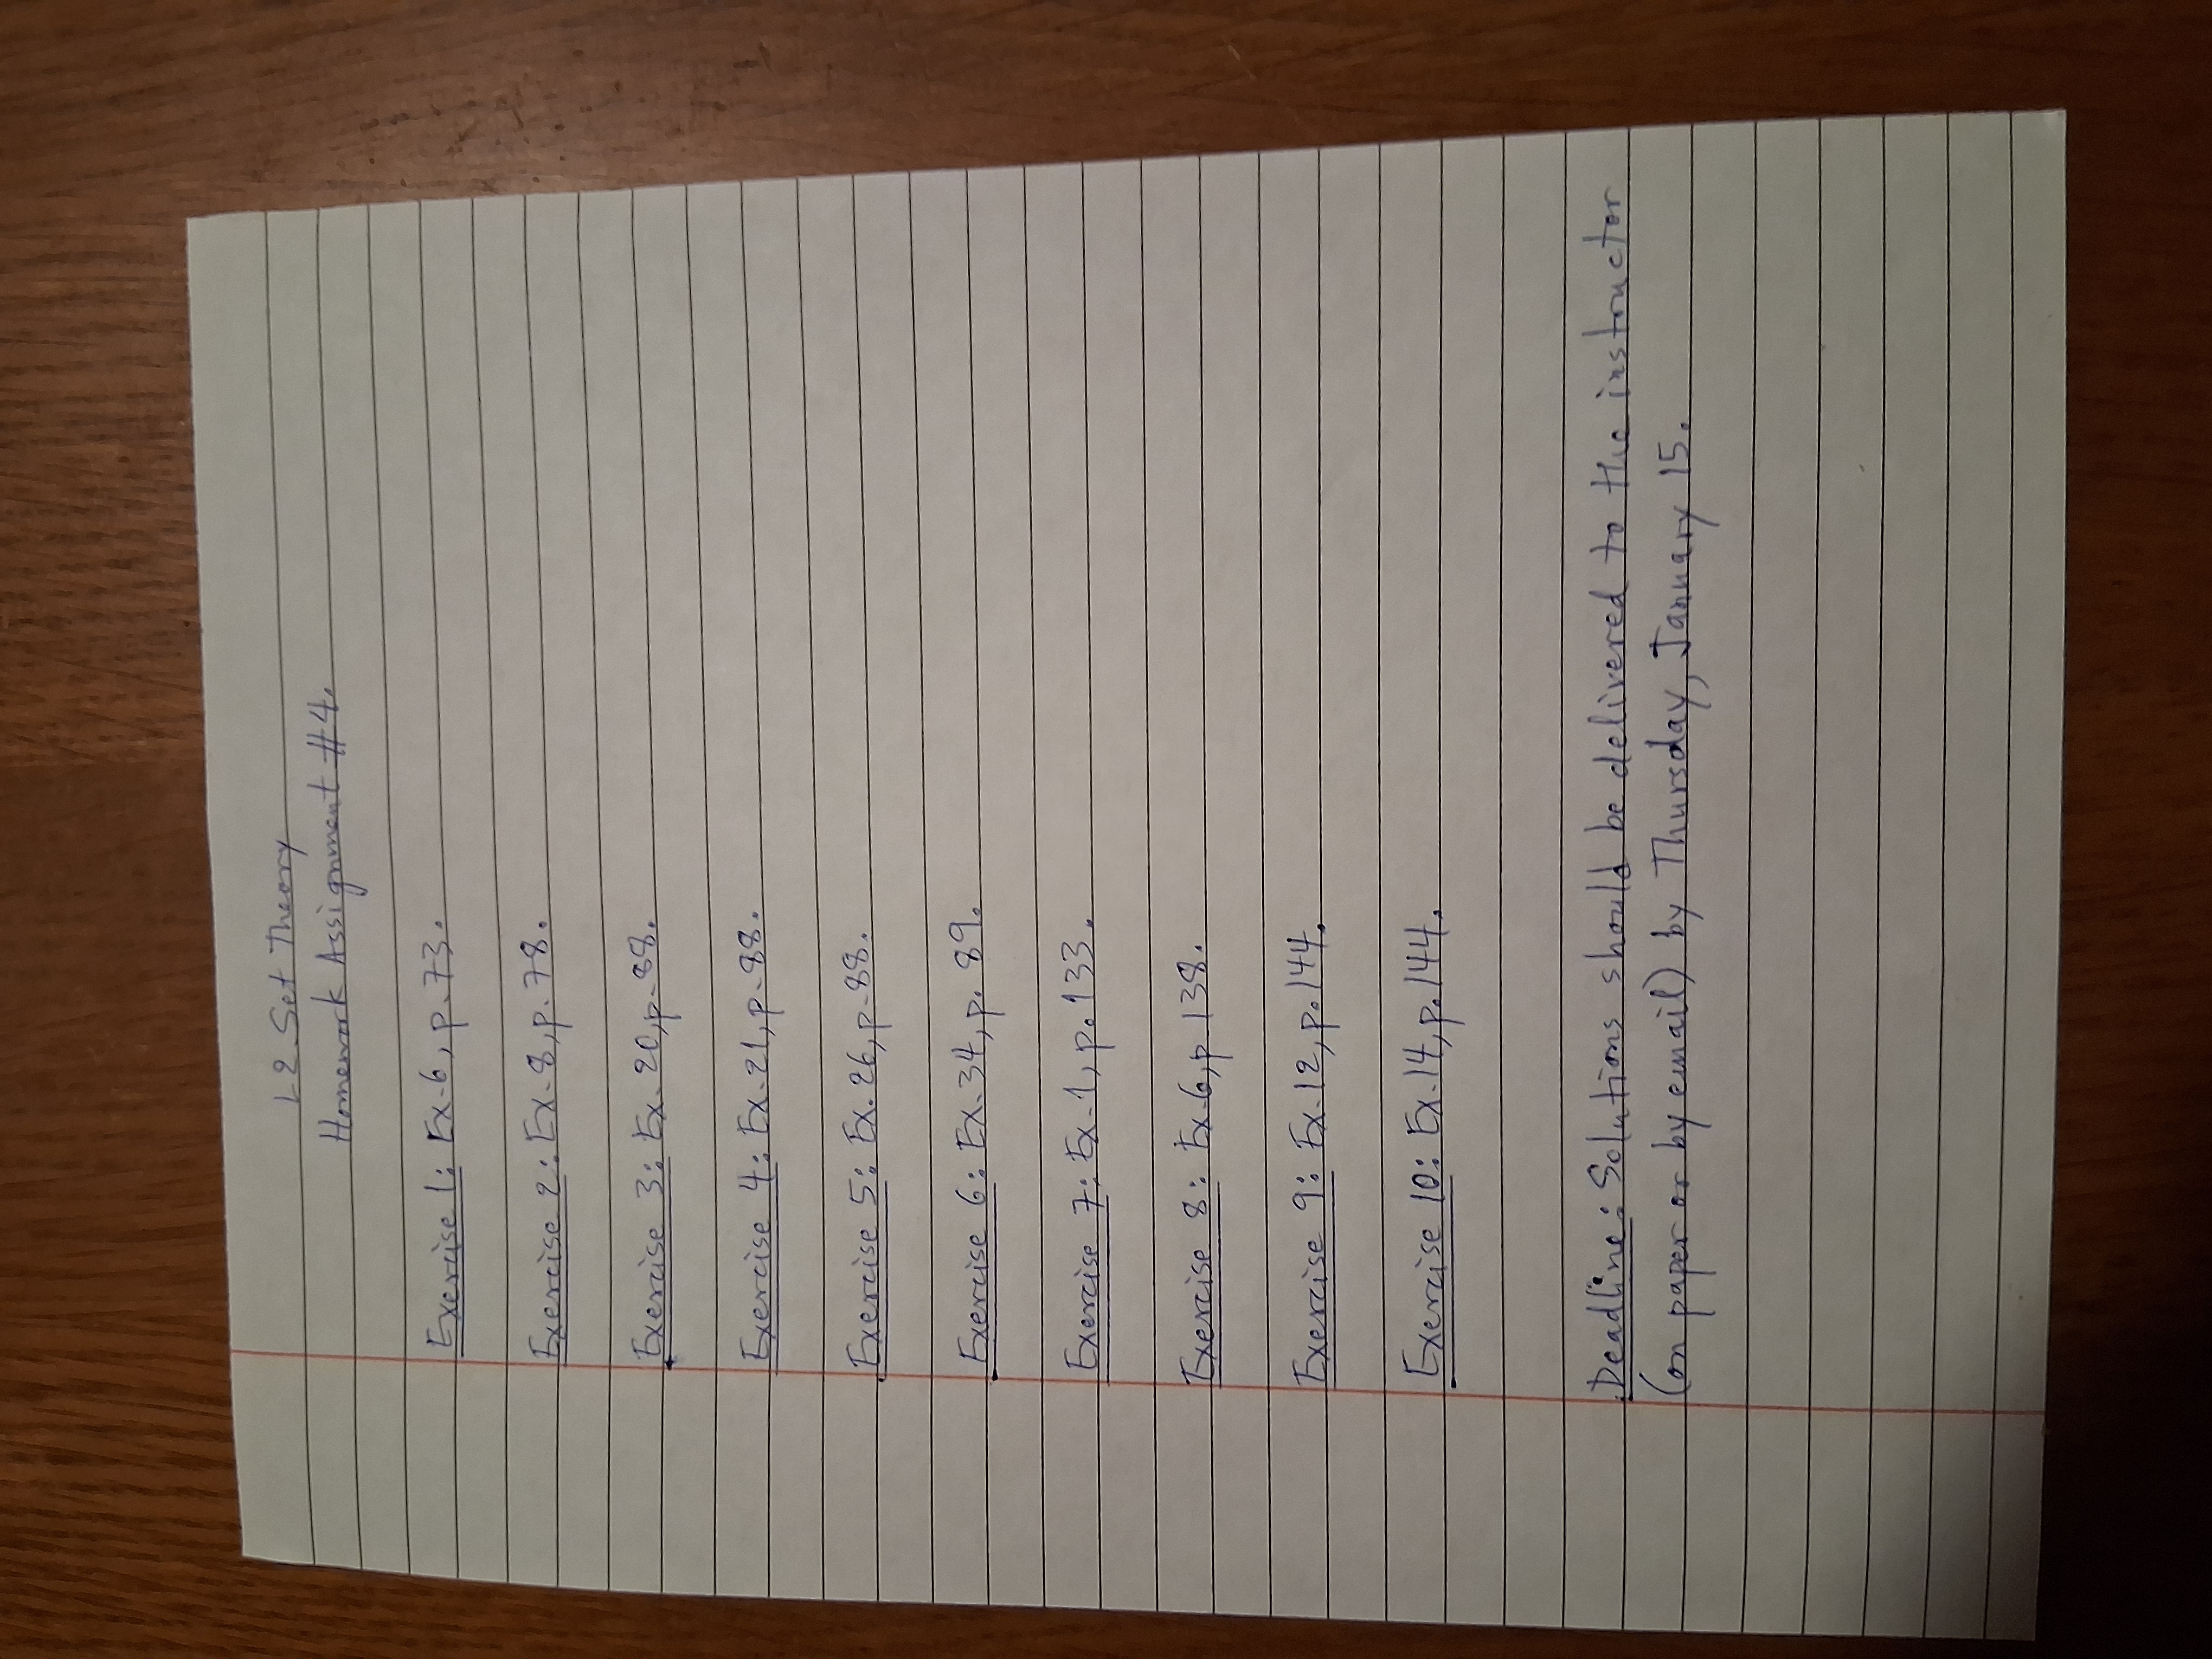 L2 Set Theory
Homework Assignment #4.
Exercise 1: Ex. 6, p. 73.
Exercise 2: Ex. 8, p. 78.
Exercise 3: Ex. 20, p. 88.
Exercise 4: Ex. 21, p. 88.
Exercise 5: Ex. 26, p. 88.
Exercise 6: Ex. 34, p. 89.
Exercise 7: Ex. 1, p. 133.
Exercise 8: Ex. 6, p. 138.
Exercise 9: Ex. 12, p. 144.
Exercise 10: Ex. 14, p. 144.
Deadline: Solutions should be delivered to the instructor
(on paper or by email) by Thursday, January 15.